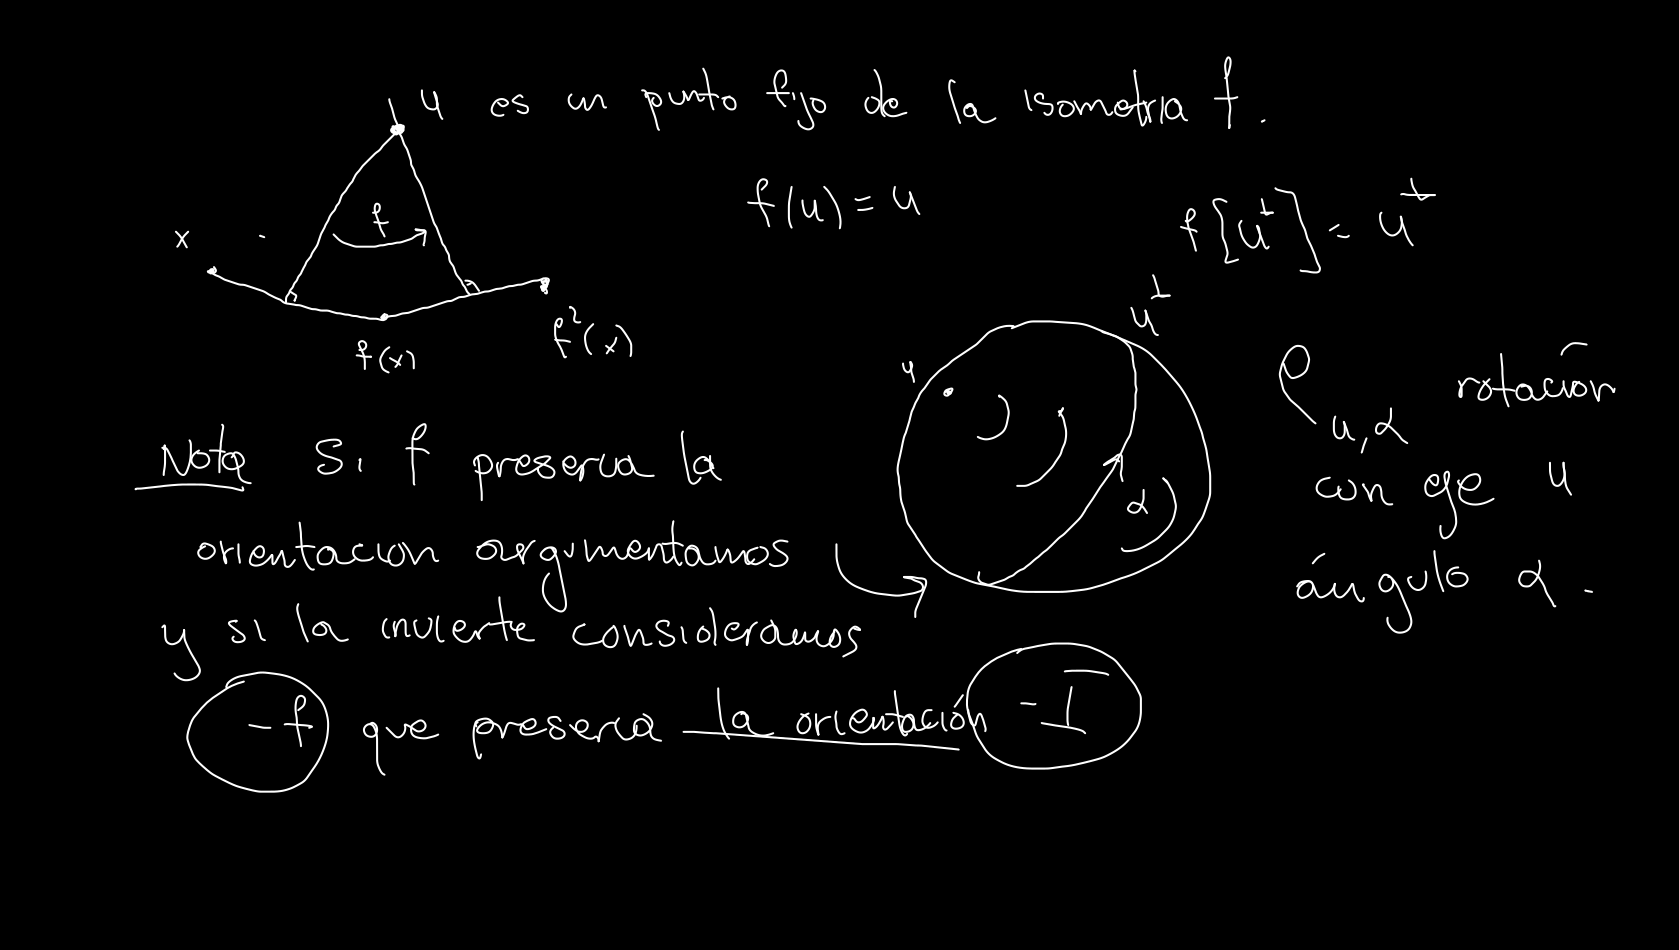 u es un punto fijo de la isometria f.
f(u) = u
f[u^⊥] = u^⊥
f
x
f(x)
f²(x)
u
u^⊥
α
ρ_{u,α} rotación
con eje u
ángulo α.
Nota Si f preserva la
orientacion argumentamos
y si la invierte consideramos
-f que preserva la orientación -I